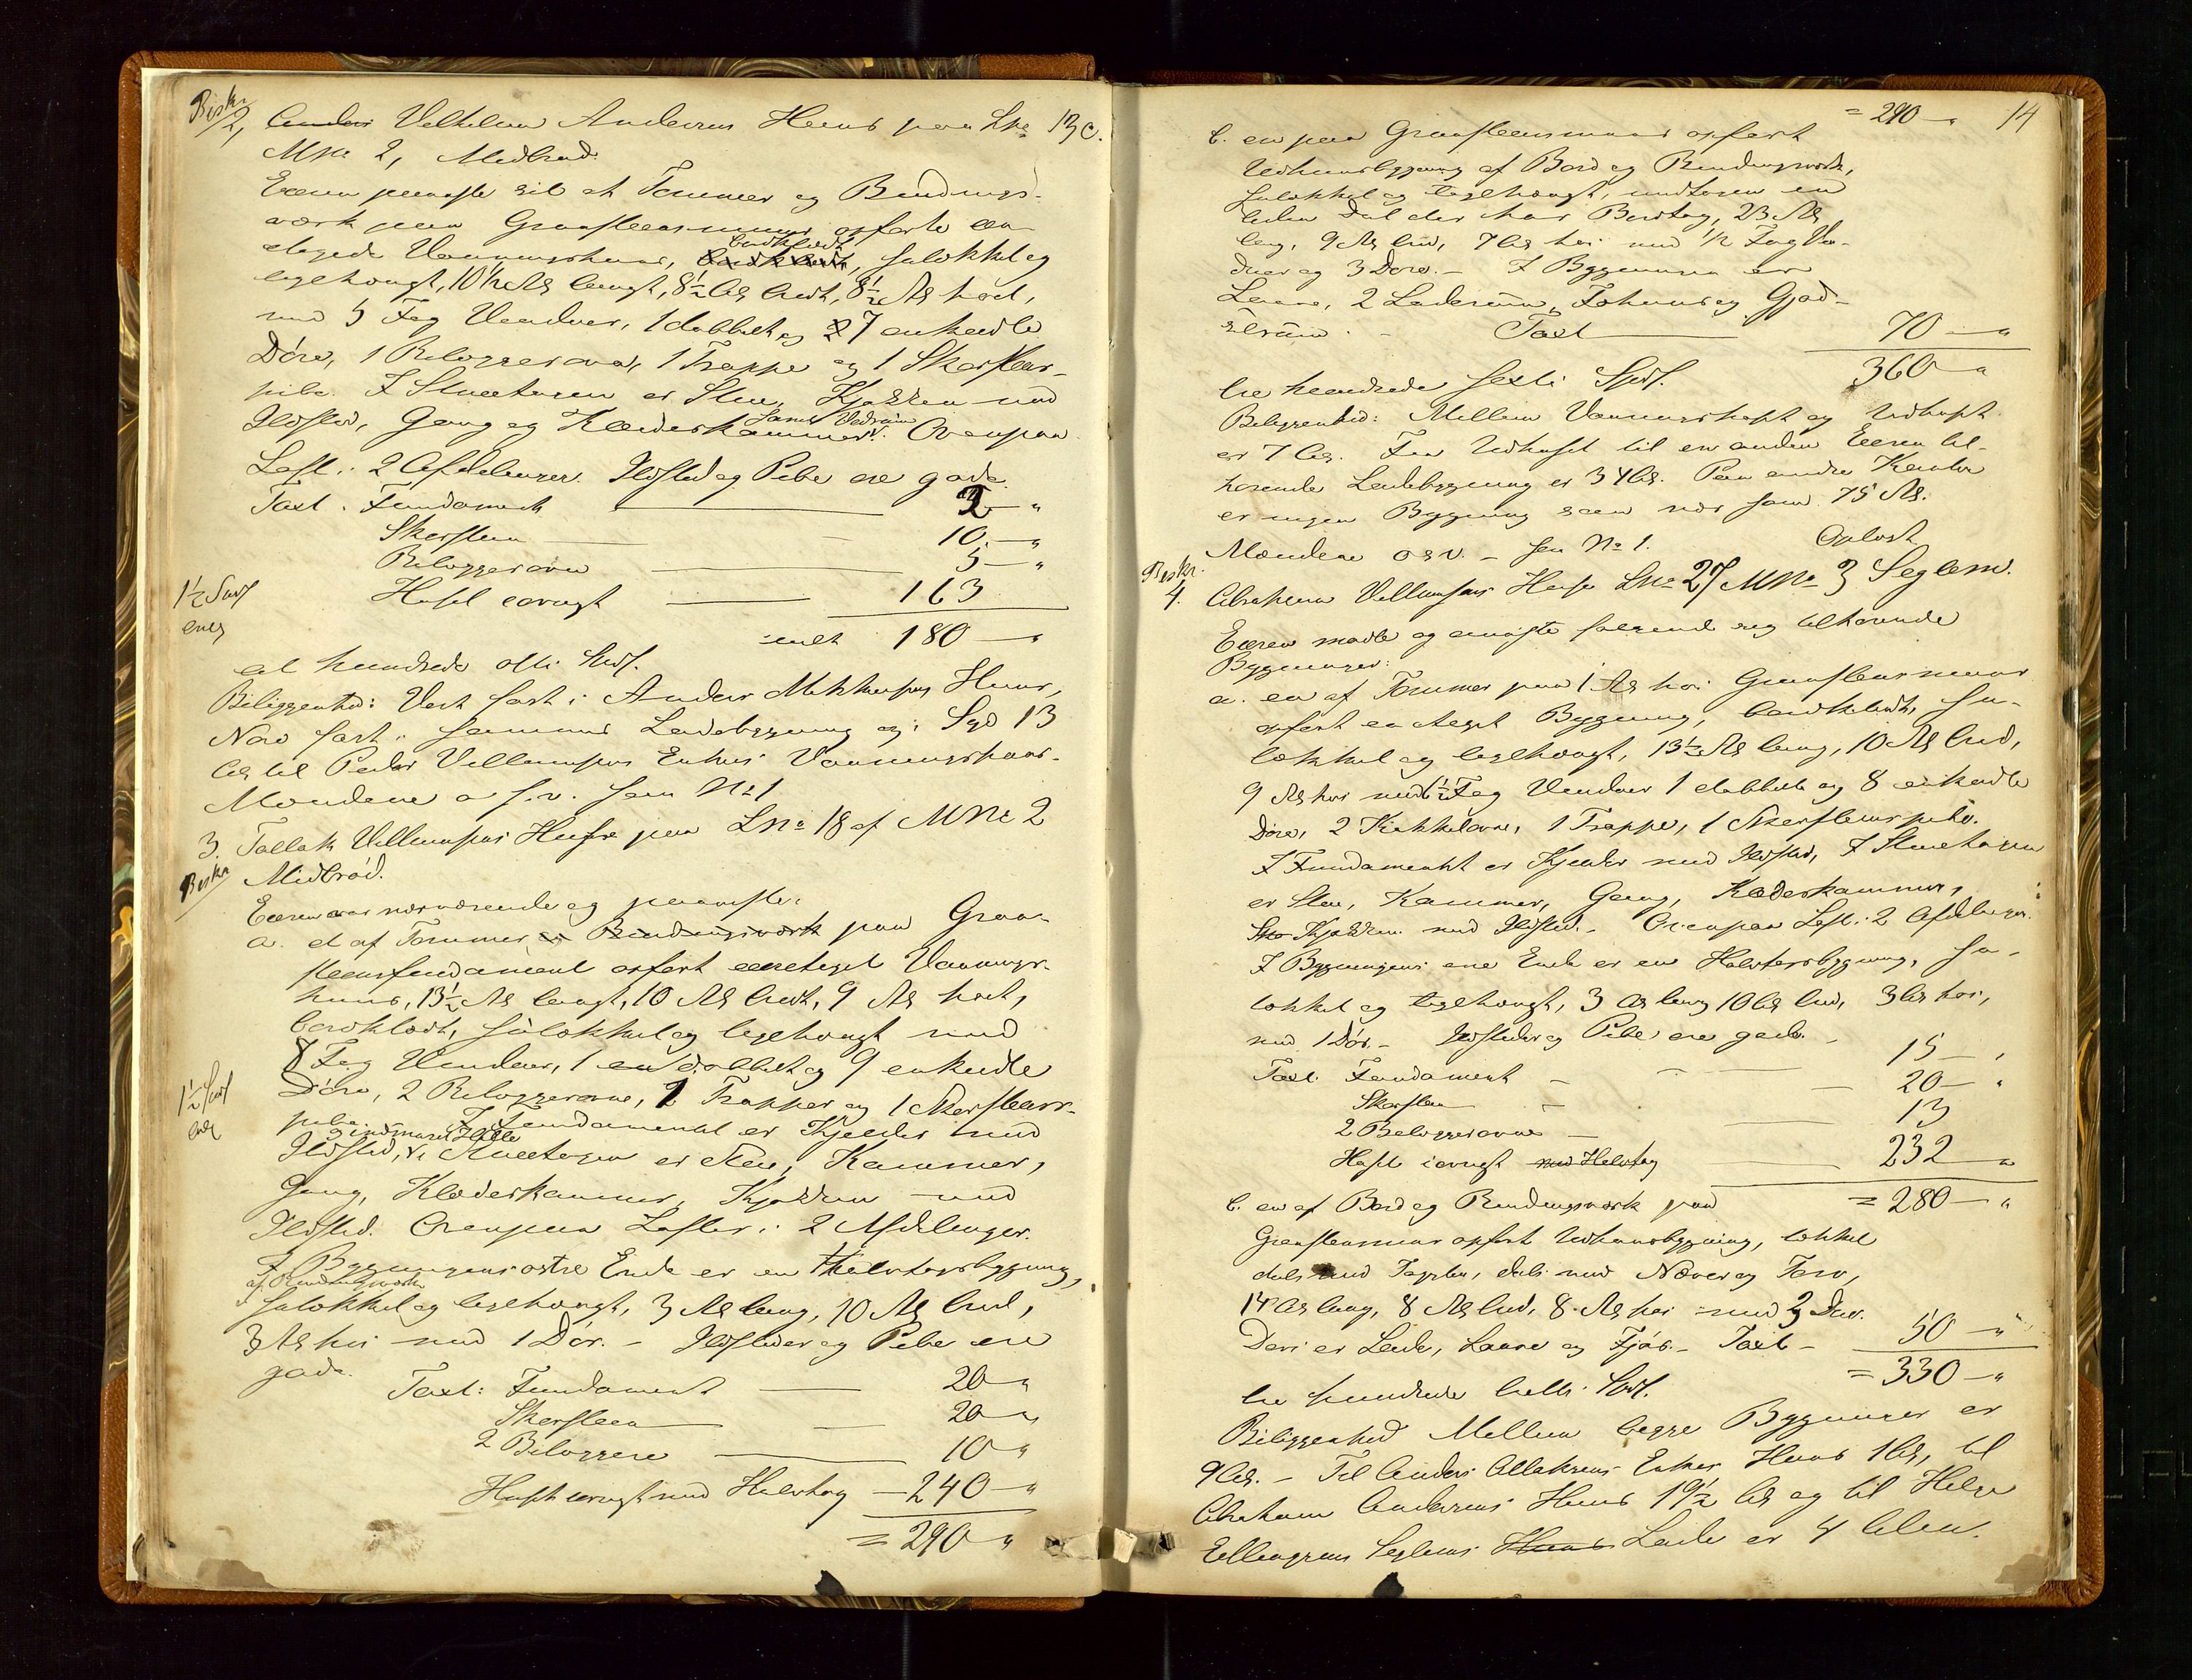 Beskr
2, Anders Velhelm Andersens Huus paa Lnr 13c.
MNr 2, Midbrød.
Eieren paaviste sit af Tømmer og Bindings-
værk paa Graasteensmuur opførte een
etages Vaaningshuus, bordklædt, sulokket og
teglhængt, 10½ Al langt, 8½ Al bredt, 8½ Al høit,
med 5 Fag Vinduer, 1 dobbelt og 7 enkelte
Døre, 1 Bilæggerovn, 1 Trappe og 1 Skorsteens-
pibe. I Stueetagen er Stue, Kjøkken med
Ildsted, Gang og Klædeskammer samt Vedrum. Ovenpaa
Loft i 2 Afdelinger. Ildsted og Pibe ere gode.
Taxt. Fundament 2 – "
Skorsteen 10 – "
Bilæggerovn 5 – "
1½ Sk
Huset øvrigt 163
ialt 180 – "
et hundrede otti Spd.
Beliggenhed: Vest fast i Anders Mikkelsens Huus,
Nord fast i samme Ladebygning og i Syd 13
Al til Peder Vellumsens Enkes Vaaningshuus.
Mændene o. s. v. som No 1
3. Tallak Vellumsens Huse paa LNo 18 af MNr 2
Beskr Midbrød.
Eieren var nærværende og paaviste:
a. et af Tømmer og Bindingsværk paa Graa-
steensfundament opført eenetages Vaanings-
huus, 13½ Al langt, 10 Al bredt, 9 Al høit,
bordklædt, sulokket og teglhængt med
8 Fag Vinduer, 1 dobbelt og 9 enkelte
1½ Sk
Døre, 2 Bilæggerovne, 2 Trapper og 1 Skorsteens-
pibe. I Fundamentet er Kjelder med
Ildsted, I Stueetagen er Stue, Kammer,
Gang, Klædeskammer, Kjøkken med
Ildsted. Ovenpaa Lofter i 2 Afdelinger.
I Bygningens østre Ende er en Halvtagsbygning,
af Bindingsværk
sulokket og teglhængt, 3 Al lang, 10 Al bred,
3 Al høi med 1 Dør. – Ildsteder og Pibe ere
gode.
Taxt: Fundament 20 – "
Skorsteen 20 – "
2 Bilæggere 10 "
Huset øvrigt med Halvtag – 240 – "
= 290 – "
= 290 – " 14
b. en paa Graasteensmuur opført
Udhuusbygning af Bord og Bindingsværk,
sulokket og teglhængt, undtagen en
liden Del der har Bordtag, 23 Al
lang, 9 Al bred, 7 Al høi med ½ Fag Vin-
duer og 3 Døre. – I Bygningen er
Laave, 2 Laderum, Fæhuus og Gjød-
selrum. – Taxt 70 – "
360 – "
tre hundrede sexti Spd.
Beliggenhed: Mellem Vaaningshuset og Udhuset
er 7 Al. Fra Udhuset til en anden Eieren til-
hørende Ladebygning er 34 Al. Paa andre Kanter
er ingen Bygning saa nær som 75 Al.
Mændene o s v. – som No 1.
Opløst
Beskr.
4. Abraham Vellumsens Huse LNo 27 MNo 3 Seglem.
Eieren mødte og anviste følgende sig tilhørende
Bygninger:
a. en af Tømmer paa 1 Al høi Graasteensmuur
opført en etages Bygning, bordklædt, su-
lokket og teglhængt, 13½ Al lang, 10 Al bred,
9 Al høi med 6½ Fag Vinduer 1 dobbelt og 8 enkelte
Døre, 2 Kakkelovne, 1 Trappe, 1 Skorsteenspibe.
I Fundamentet er Kjelder med Ildsted, I Stueetagen
er Stue, Kammer, Gang, Klædeskammer,
Kjøkken med Ildsted. – Ovenpaa Loft i 2 Afdelinger.
I Bygningens ene Ende er en Halvtagsbygning, su-
lokket og teglhængt, 3 Al lang 10 Al bred, 3 Al høi,
med 1 Dør. – Ildsteder og Pibe ere gode. –
Taxt. Fundament – 15 – "
Skorsteen – 20 – "
2 Bilæggerovne – 13
Huset iøvrigt med Halvtag 232 – "
b. en af Bord og Bindingsværk paa = 280 – "
Graasteensmuur opført Udhuusbygning, tækket
dels med Tagsten, dels med Næver og Torv,
14 Al lang, 8 Al bred, 8 Al høi med 3 Døre.
Deri er Lade, Laave og Fjøs. – Taxt – 50 – "
= 330 – "
tre hundrede tretti Spd.
Beliggenhed Mellem begge Bygninger er
9 Al. – Til Anders Allaksens Enkes Huus 1 Al, til
Abraham Andersens Huus 19½ Al og til Helge
Ellingsens Seglems Huus Lade er 4 Alen.